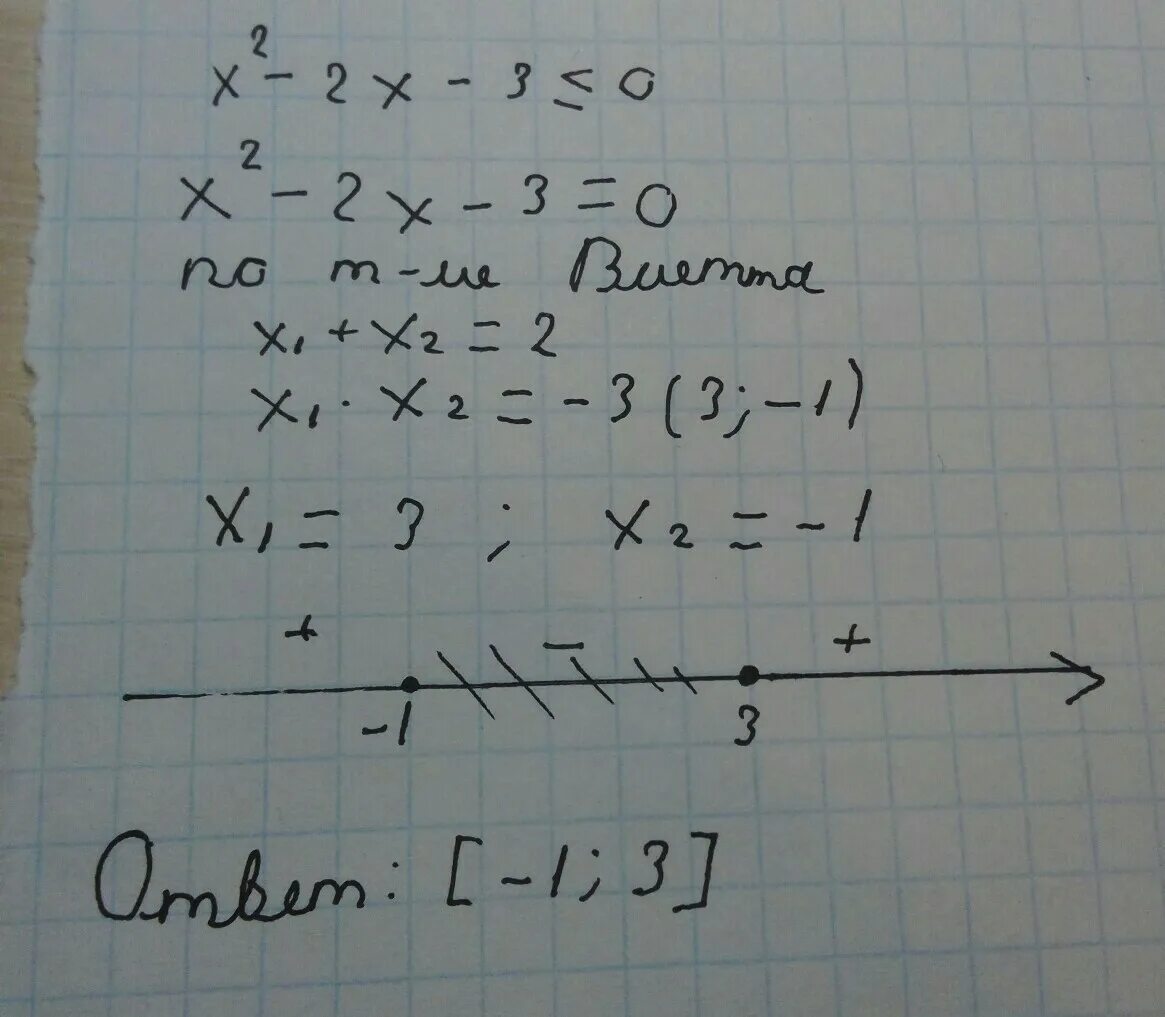 x² - 2x - 3 ≤ 0
x² - 2x - 3 = 0
по т-ме Виетта
x₁ + x₂ = 2
x₁ · x₂ = -3 (3; -1)
x₁ = 3 ; x₂ = -1
+ − +
-1 3
Ответ: [-1; 3]